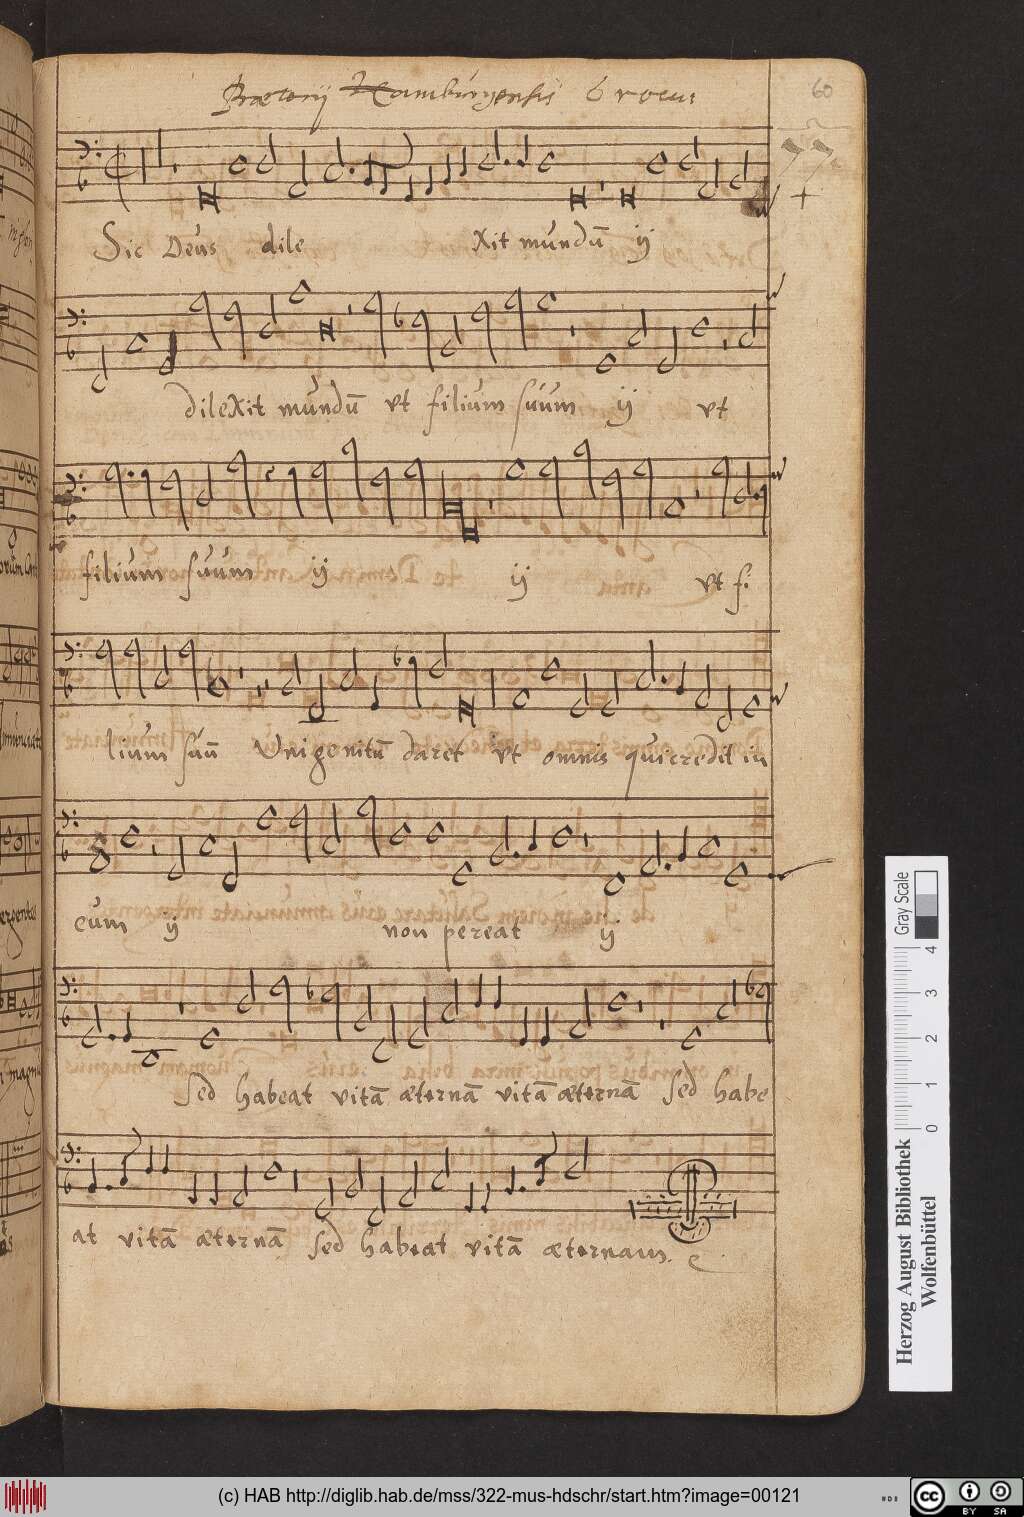 Praetorij Hamburgensis 6 vocum
60
77
Sic Deus dile xit mundū ij
dilexit mundū vt filium suum ij vt
filium suum ij ij vt fi
lium suū Unigenitū daret vt omnis qui credit in
eum ij non pereat ij
sed habeat vitā æternā vitā æternā sed habe
at vitā æternā sed habeat vitā æternam
Gray Scale
0 1 2 3 4
Herzog August Bibliothek
Wolfenbüttel
(c) HAB http://diglib.hab.de/mss/322-mus-hdschr/start.htm?image=00121
cc BY SA